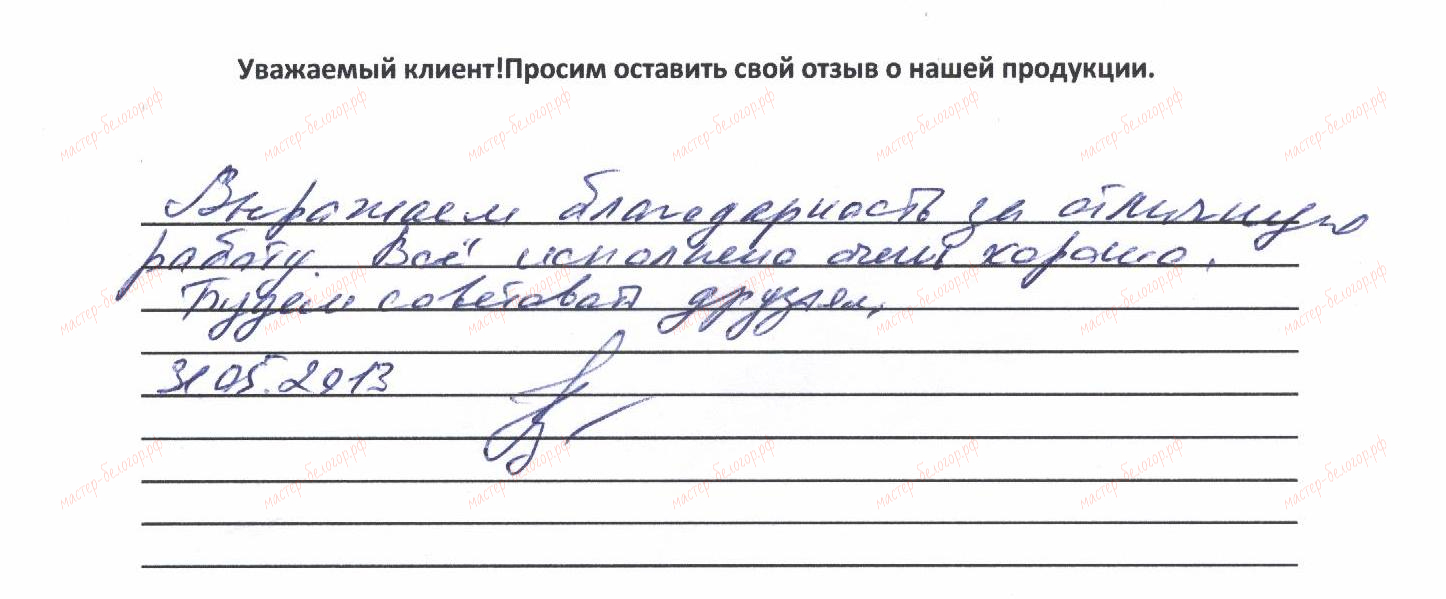 Уважаемый клиент!Просим оставить свой отзыв о нашей продукции.
Выражаем благодарность за отличную
работу. Всё исполнено очень хорошо.
Будем советовать друзьям.
31.05.2013
мастер-белогор.рф мастер-белогор.рф мастер-белогор.рф мастер-белогор.рф мастер-белогор.рф мастер-белогор.рф мастер-белогор.рф
мастер-белогор.рф мастер-белогор.рф мастер-белогор.рф мастер-белогор.рф мастер-белогор.рф мастер-белогор.рф мастер-белогор.рф
мастер-белогор.рф мастер-белогор.рф мастер-белогор.рф мастер-белогор.рф мастер-белогор.рф мастер-белогор.рф мастер-белогор.рф